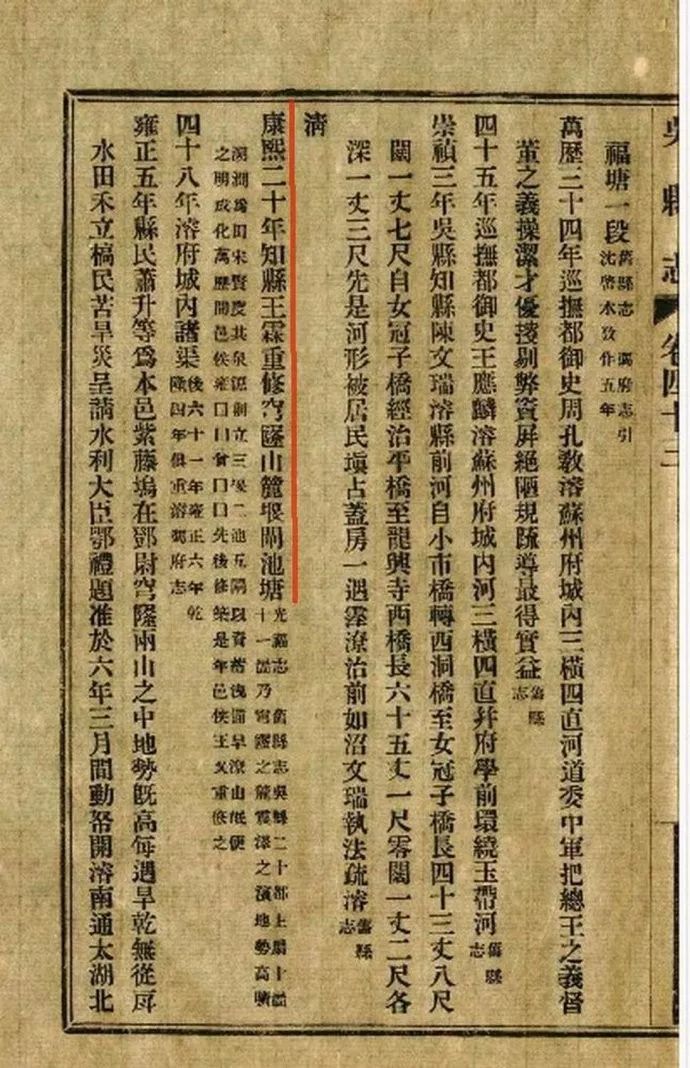 吳縣志 卷四十二
福塘一段舊縣志 馮府志引
沈啓水攷作五年
萬歷三十四年巡撫都御史周孔敎濬蘇州府城內三橫四直河道委中軍把總王之義督
董之義操潔才優搜剔弊竇屏絕陋規疏導最得實益舊縣志
四十五年巡撫都御史王應麟濬蘇州府城內河三橫四直幷府學前環繞玉帶河舊縣志
崇禎三年吳縣知縣陳文瑞濬縣前河自小市橋轉西洞橋至女冠子橋長四十三丈八尺
闊一丈七尺自女冠子橋經治平橋至龍興寺西橋長六十五丈一尺零闊一丈二尺各
深一丈三尺先是河形被居民塡占蓋房一遇霪潦治前如沼文瑞執法疏濬舊縣志
清
康熙二十年知縣王霖重修穹窿山麓堰閘池塘光福志 舊縣志吳縣二十都上扇十啚
十一啚乃穹窿之麓震澤之濱地勢高曠
爲田宋賢度其泉源創立三梁二池五閘以資蓄洩備旱潦山低便
之明成化萬歷間邑侯雍囗曰囗囗先後修築是年邑侯王又重修之
四十八年濬府城內諸渠後六十一年雍正六年乾
隆四年俱重濬馮府志
雍正五年縣民蕭升等爲本邑紫藤塢在鄧尉穹窿兩山之中地勢旣高每遇旱乾無從戽
水田禾立槁民苦旱災呈請水利大臣鄂禮題准於六年三月間動帑開濬南通太湖北